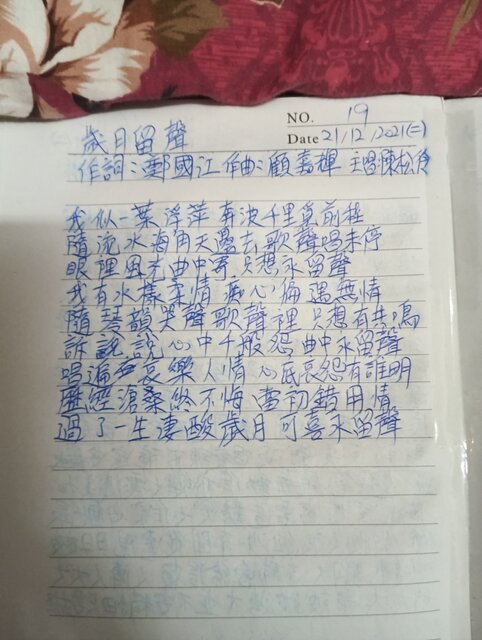 NO. 19
歲月留聲
Date 21/12/2021(二)
作詞：鄭國江 作曲：顧嘉輝 主唱陳松伶
我似一葉浮萍奔波千里覓前程
隨流水海角天邊去歌聲唱未停
眼裡風光曲中寄只想永留聲
我有水樣柔情痴心偏遇無情
隨琴韻哭聲歌聲裡只想有共鳴
訴說說心中千般怨曲中永留聲
唱遍哀樂人情心底哀怨有誰明
歷經滄桑終不悔當初錯用情
過了一生淒酸歲月可喜永留聲